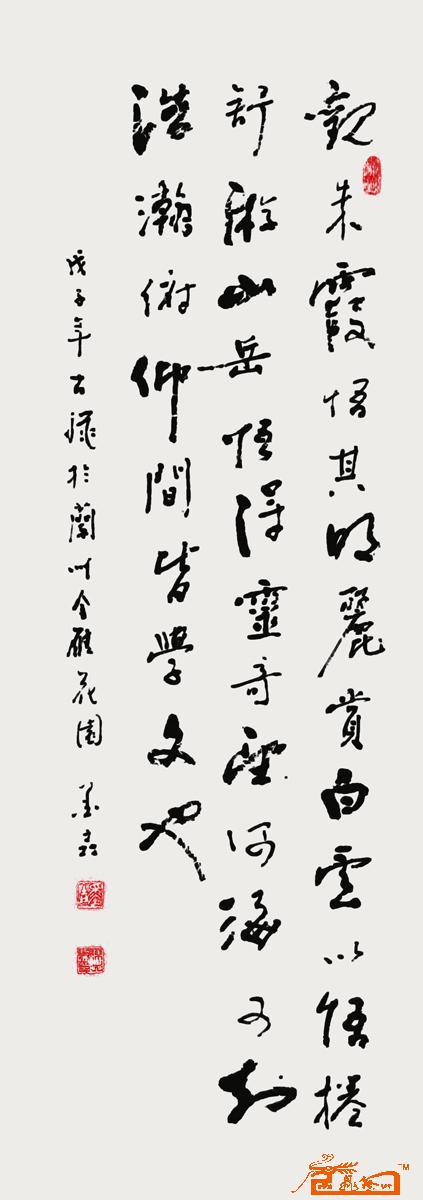 觀朱霞悟其明麗賞白雲以悟捲
舒遊山岳悟得靈奇望河海可到
浩瀚俯仰間皆學文也
戊子年古隴於蘭州金雁花園